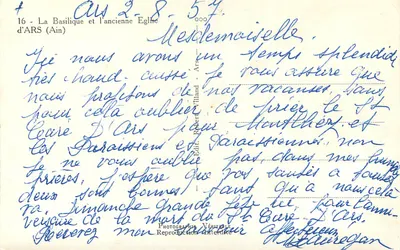 Ars 2-8-57
16 - La Basilique et l'ancienne Eglise
d'ARS (Ain)
Mesdemoiselle.
Ici nous avons un temps splendide
très chaud aussi je vous assure que
nous profitons de nos vacances, sans
pour cela oublier de prier le St
Curé D'Ars pour Montlhéry et
les Paroissiens et Paroissiennes, non
je ne vous oublie pas, dans mes
prières. J'espère que vos santés à toutes
deux sont bonnes, tant qu'à nous cela
va, Dimanche Grande fête ici, pour l'anni-
versaire de la mort du St Curé D'Ars.
Recevez mon